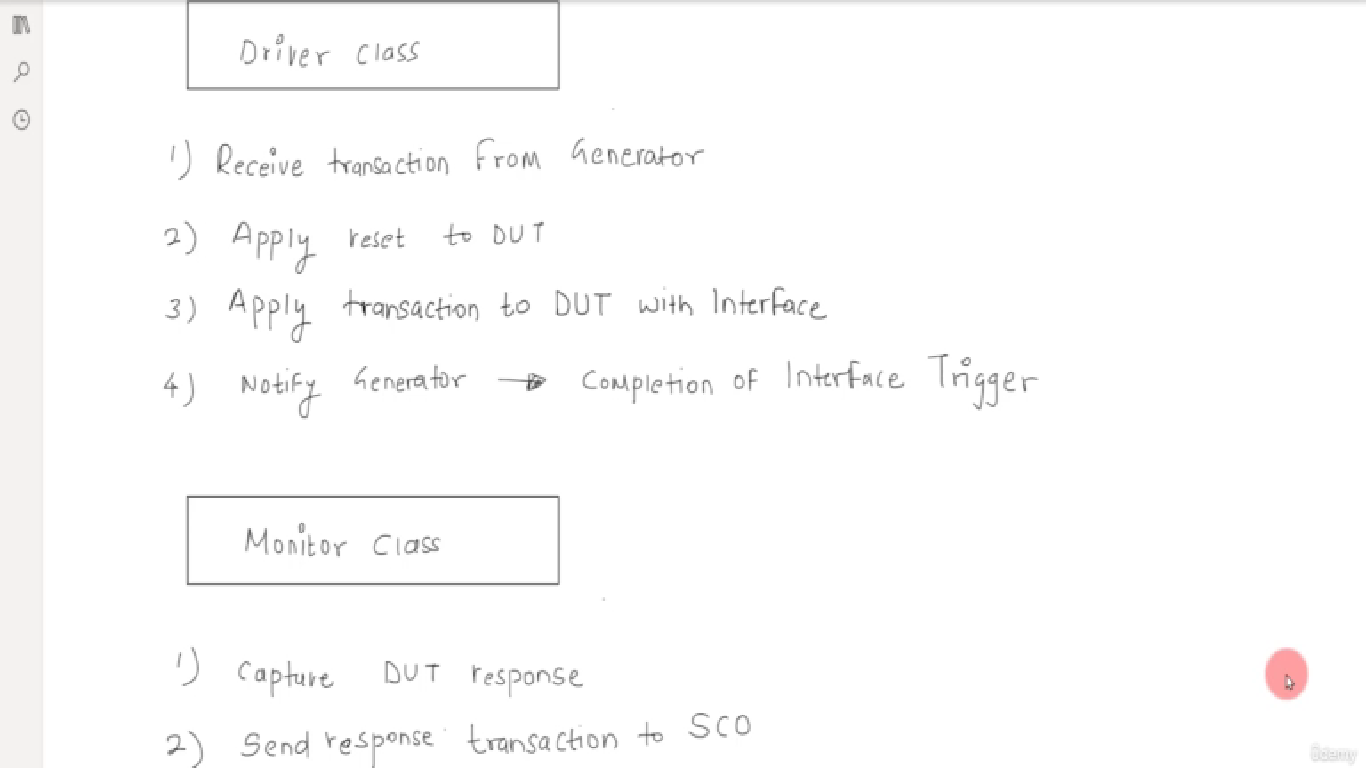 Driver class
1) Receive transaction From Generator
2) Apply reset to DUT
3) Apply transaction to DUT with Interface
4) Notify Generator → Completion of Interface Trigger
Monitor Class
1) Capture DUT response
2) Send response transaction to SCO
ûdemy